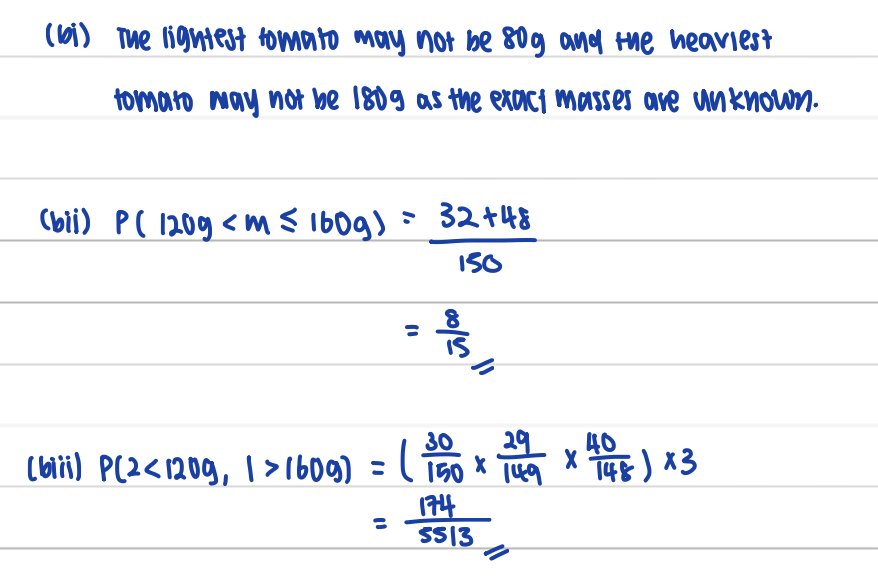 (bi) The lightest tomato may not be 80g and the heaviest
tomato may not be 180g as the exact masses are unknown.
(bii) P( 120g < m ≤ 160g) = 32+48
150
= 8
15
(biii) P(2<120g, 1 >160g) = ( 30/150 × 29/149 × 40/148 ) ×3
= 174
5513